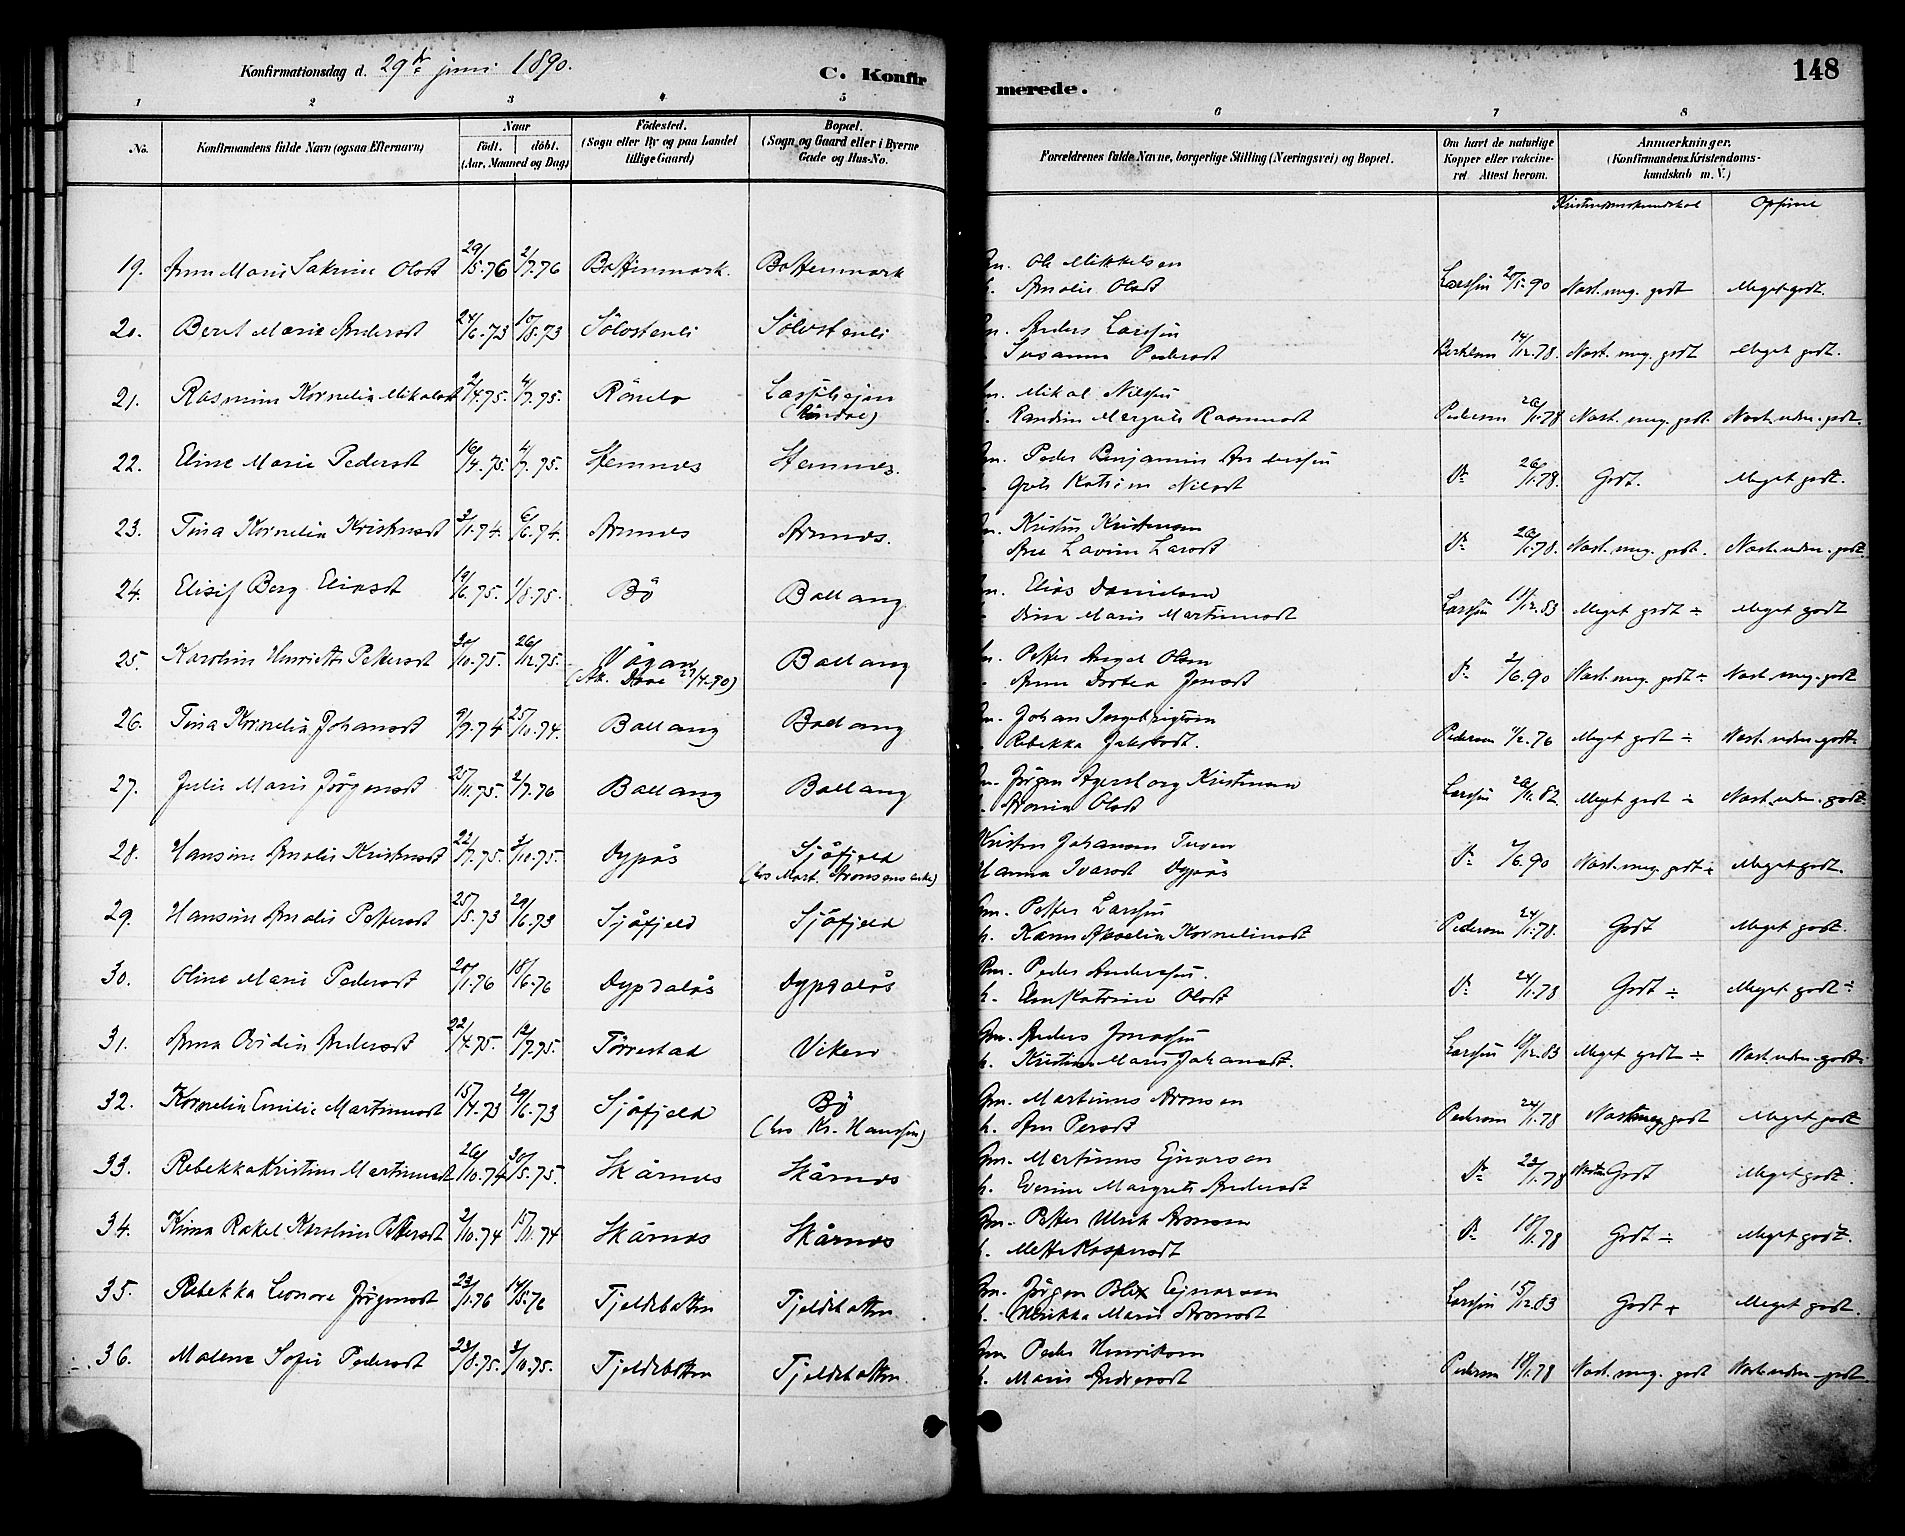 Konfirmationsdag d. 29de juni 1890.
C. Konfir
merede.
148
1 2 3 4 5 6 7 8
No.
Konfirmandens fulde Navn (ogsaa Efternavn)
Naar
födt. döbt.
(Aar, Maaned og Dag)
Födested.
(Sogn eller By og paa Landet
tillige Gaard)
Bopæl.
(Sogn og Gaard eller i Byerne
Gade og Hus-No.
Forældrenes fulde Navne, borgerlige Stilling (Næringsvei) og Bopæl.
Om havt de naturlige
Kopper eller vakcine-
ret. Attest herom.
Anmærkninger.
(Konfirmandens Kristendoms-
kundskab m. V.)
Kristendomskundskab
19. Anna Marie Olsdt 29/5.76 2/7.76 Bottenmark. Bottenmark
Ole Mikkelsen
Amalie Olsdt
Larssen 90 Nast. meg. godt Meget godt.
20. Beret Marie Andersdt 24/6.73 10/8.73 Sölvstenli Sölvstenli
Anders Larssen
Susanna Pedersdt
14/12.78. Nast. meg. godt Meget godt.
21. Kornelia Mikalsdt 4/7.75. (Rándal)
Mikal Nilssen
Margrete Rasmusdt
Pedersen 26/1.78 Nast. meg. godt Nast. uden. godt.
22. Eline Marie Pedersdt 16/4.75. 4/7.75. Hemnes Hemnes.
Peder Benjamin Anderssen
Katrine Nilsdt
Do 26/1.78. Godt. Meget godt.
23. Tina Kornelia Kristensdt 3/1.74. 6/6.74. Arnnes Arnnes.
Ane Lavina Larsdt
Do 26/1.78. Nast. meg. godt. Nast. uden. godt.
24. Elisif Berg Eliasdt 19/6.75. 1/8.75. Bö Ballang
Elias Danielsen
Dina Marie Martinusdt
Larssen 11/12.83 Meget godt ÷ Meget godt
25. Karoline Henriette Pettersdt 30/10.75. 26/12.75. Vågan Ballang
Petter Angel Olsen
Anna Dortea Jensdt
Do 2/6.90 Nast. meg. godt ÷ Nast. meg. godt
26. Tina Kornelia Johansdt 9/9.74 25/10.74. Ballang Ballang
Johan Ingebrigtsen
Rebekka Jakobsdt.
Pedersen 76 Meget godt ÷ Nast. uden. godt
27. Julie Marie Jörgensdt 25/11.75. 2/7.76 Ballang Ballang
Jörgen Agersborg Kristensen
Olsdt
Larssen 82 Meget godt ÷ Nast. uden. godt
28. Hansine Amalie Kristensdt 22/7.75. 3/10.75. Dypås Sjåfjeld
(hos Mart. Aronsens enke)
Kristen Johannes Iversen
Hanna Ivarsdt Dypås
Do 2/6.90 Nast. meg. godt ÷ Meget godt.
29. Hansine Amalie Pettersdt 25/5.73 29/6.73 Sjåfjeld Sjåfjeld
Gm. Petter Larssen
h. Karen Kornelinsdt
Pedersen 24/1.78. Godt Meget godt.
30. Oline Marie Pedersdt 20/1.76 18/6.76 Dypdalås Dypdalås
Gm. Peder Anderssen.
h. Katrine Olsdt
Do 24/1.78 Godt ÷ Meget godt ÷
31. Anna Ovidia Andersdt 22/4.75. 12/9.75. Törrestad Viken
Gm. Anders Jonassen
h. Kristine Marie Johansdt.
Larssen 83 Meget godt ÷ Nast. uden. godt
32. Kornelia Emilie Martinusdt 15/4.73 29/6.73 Sjåfjeld Bö
(hos Kr. Hanssen)
Gm. Martinus Aronsen
h. Ane Persdt
Pedersen 24/1.78 Nast. meg. godt Meget godt
33. Rebekka Kristine Martinusdt 26/10.74 30/5.75. Skårnes Skårnes
Gm. Martinus Ejnarsen
h. Everine Margrete Andersdt
Do 23/1.78 Godt Meget godt.
34. Rakel Karoline Pettersdt 2/10.74 15/11.74 Skårnes Skårnes
Gm. Petter Ulrik Aronsen
h. Mette Kaspersdt
Do 18/1.78 Godt ÷ Meget godt.
35. Rebekka Leonore Jörgensdt 23/1.76 14/5.76 Tjeldebotten Tjeldebotten
Gm. Jörgen Blix Ejnarsen
h. Ulrikka Marie Aronsdt
Larssen 15/12.83 Godt + Meget godt.
36. Malene Sofie Pedersdt 23/8.75. 3/10.75. Tjeldebotten Tjeldebotten
Gm. Peder Henriksen
h. Marie Andersdt
Pedersen 18/1.78 Nast. meg. godt Nast. uden. godt